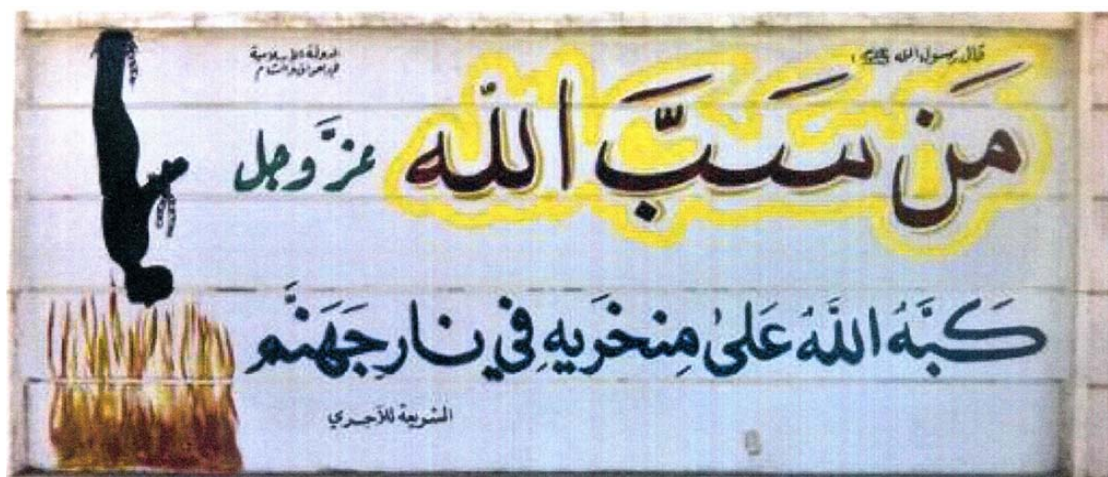 قال رسول الله ﷺ :
الدولة الإسلامية
في العراق والشام
مَن سَبَّ الله عزَّ وجل
كَبَّهُ اللَّهُ عَلىٰ مِنخَريهِ فِي نارِ جَهَنَّم
الشريعة للآجري